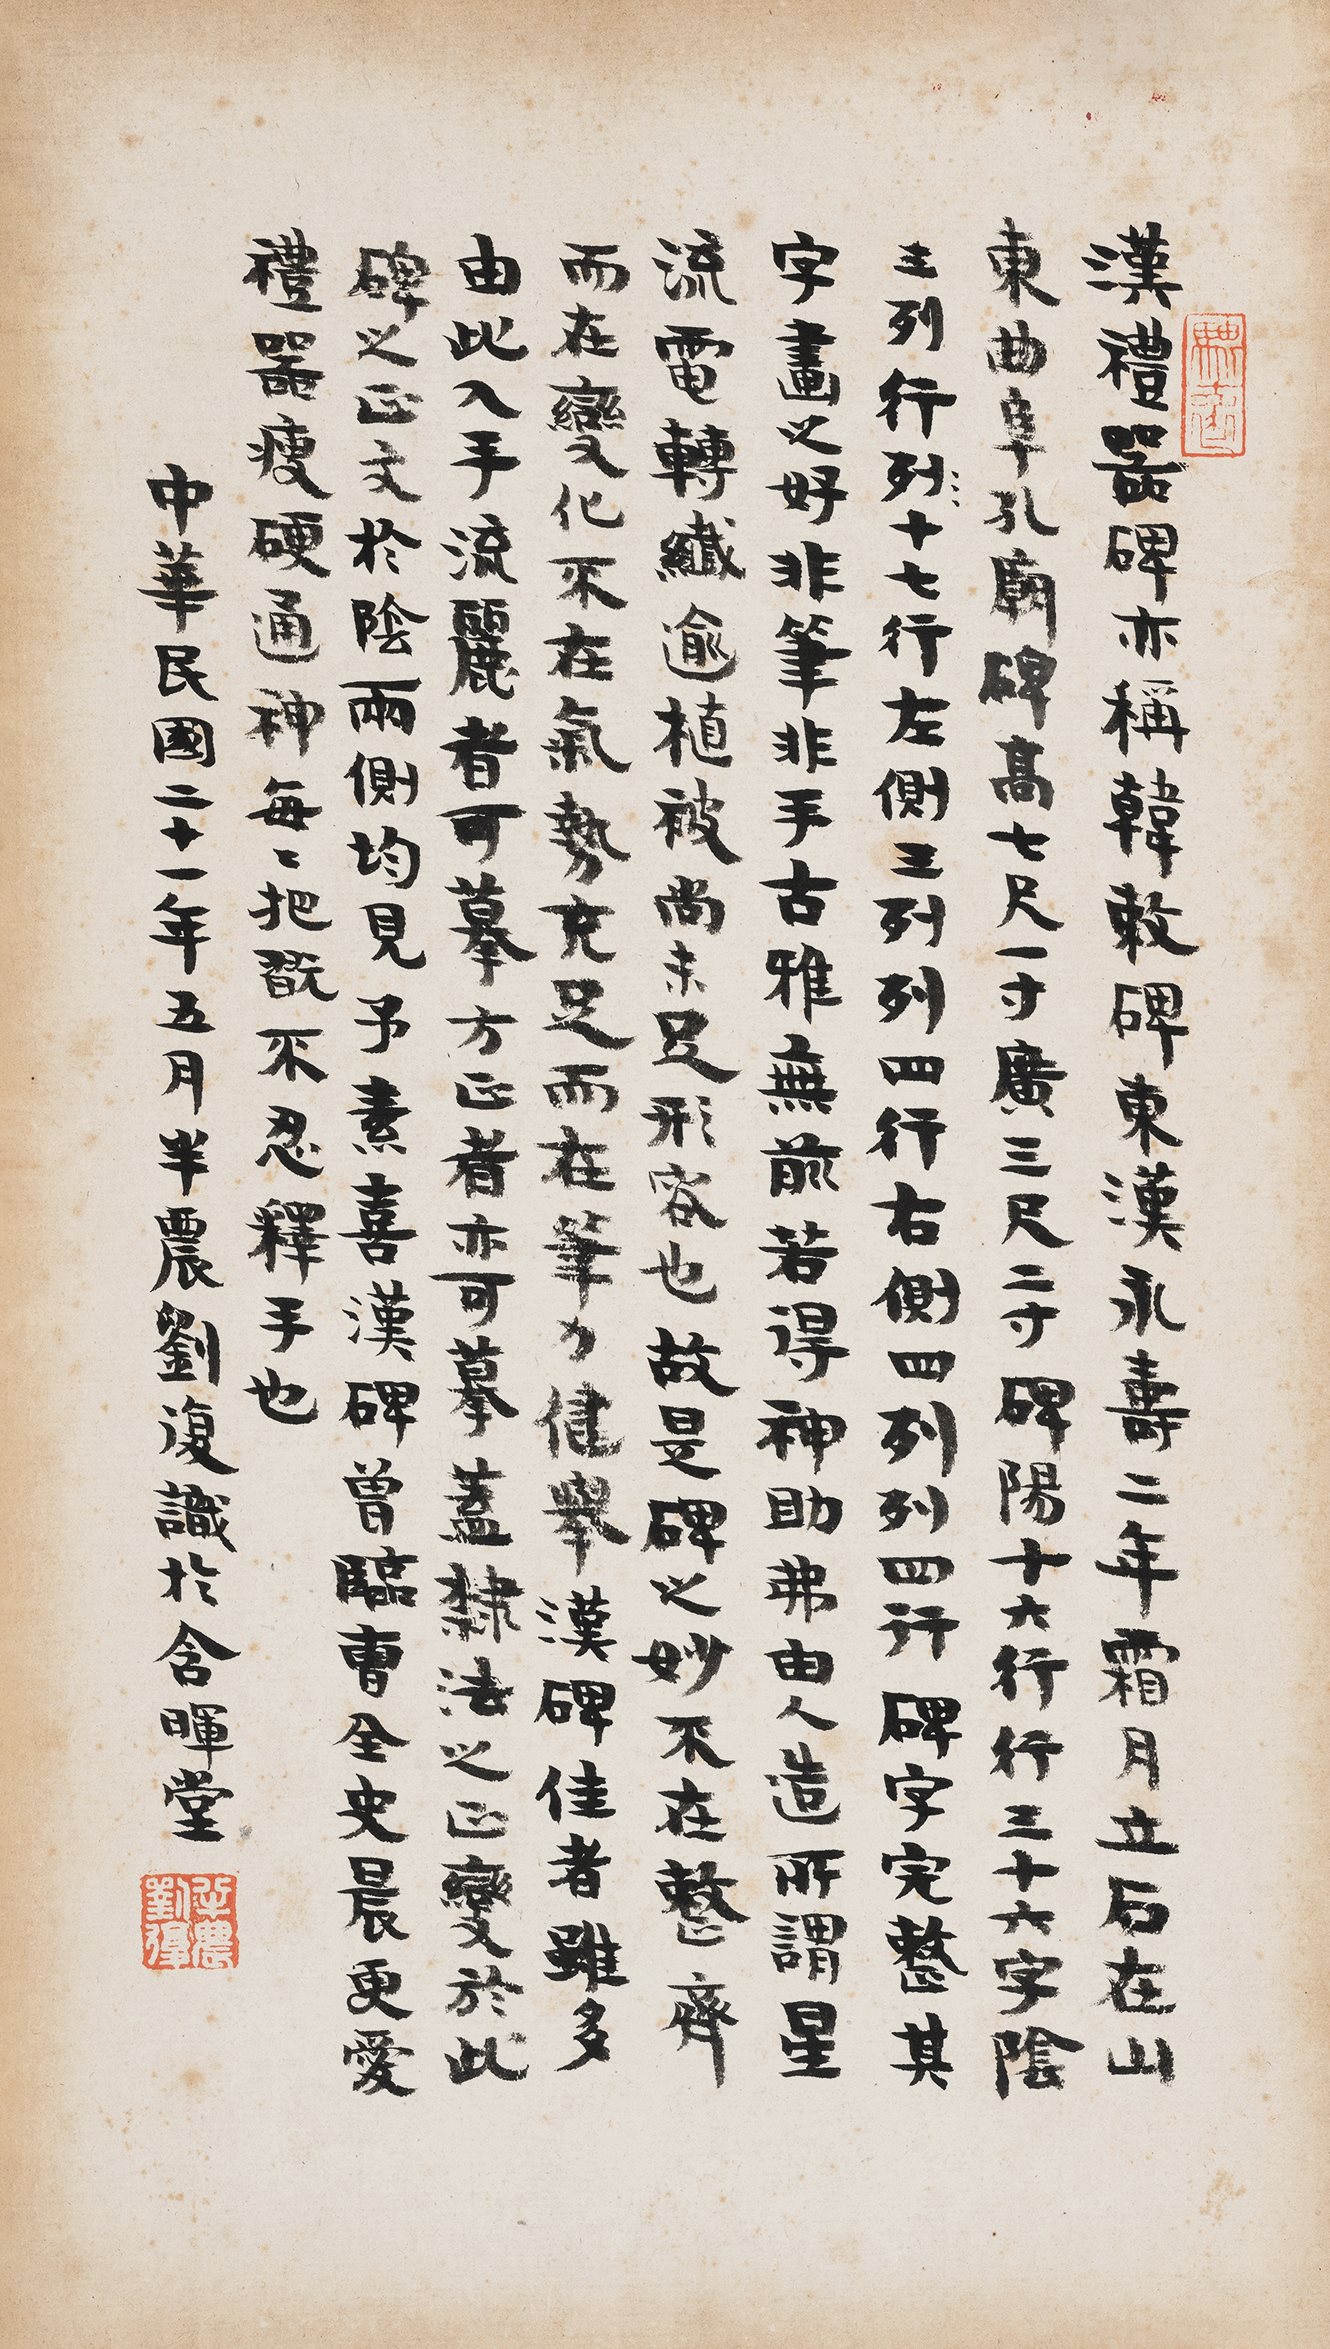 漢禮器碑亦稱韓敕碑東漢永壽二年霜月立石在山
東曲阜孔廟碑高七尺一寸廣三尺二寸碑陽十六行行三十六字陰
三列行列十七行左側三列列四行右側四列列四行碑字完整其
字畫之好非筆非手古雅無前若得神助弗由人造所謂星
流電轉纖逾植被尚未足形容也故是碑之妙不在整齊
而在變化不在氣勢充足而在筆力健舉漢碑佳者雖多
由此入手流麗者可摹方正者亦可摹蓋隸法之正變於此
碑之正文於陰兩側均見予素喜漢碑曾臨曹全史晨更愛
禮器瘦硬通神每々把翫不忍釋手也
中華民國二十一年五月半農劉復識於含暉堂
半農劉復